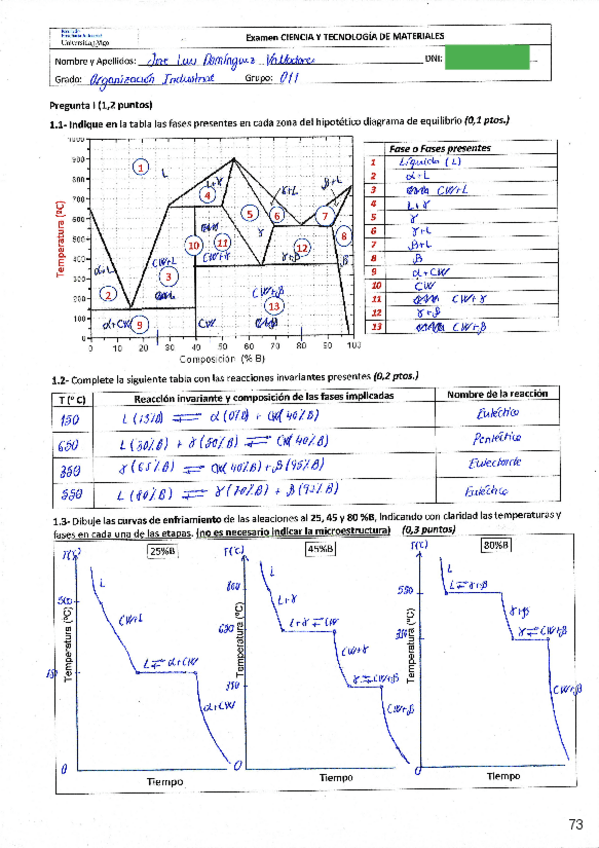 Universidade de Vigo
Examen CIENCIA Y TECNOLOGÍA DE MATERIALES
Nombre y Apellidos: Jose Luis Domínguez
DNI:
Grado: Organización Industrial Grupo: O11
Pregunta I (1,2 puntos)
1.1- Indique en la tabla las fases presentes en cada zona del hipotético diagrama de equilibrio (0,1 ptos.)
Temperatura (ºC)
1000
900
800
700
600
500
400
300
200
100
0
0 10 20 30 40 50 60 70 80 90 100
Composicion (% B)
1 L
L+γ
4
5
γ
γ+L
6
β+L
7
8
β
α+L
2
CW+L
3
10
11
CW+γ
12
γ+β
CW+β
13
α+CW 9
CW
Fase o Fases presentes
1 Líquido (L)
2 α+L
3 CW+L
4 L+γ
5 γ
6 γ+L
7 β+L
8 β
9 α+CW
10 CW
11 CW+γ
12 γ+β
13 CW+β
1.2- Complete la siguiente tabla con las reacciones invariantes presentes (0,2 ptos.)
T (º C) Reacción invariante y composición de las fases implicadas Nombre de la reacción
150 L (15%B) ⇌ α (0%B) + CW (40%B) Eutéctico
650 L (30%B) + γ (50%B) ⇌ CW (40%B) Peritéctico
350 γ (65%B) ⇌ CW (40%B) + β (95%B) Eutectoide
550 L (80%B) ⇌ γ (70%B) + β (92%B) Eutéctico
1.3- Dibuje las curvas de enfriamiento de las aleaciones al 25, 45 y 80 %B, indicando con claridad las temperaturas y
fases en cada una de las etapas. (no es necesario indicar la microestructura) (0,3 puntos)
T(ºC) 25%B
L
500
CW+L
L⇌α+CW
150
α+CW
0
Temperatura (ºC)
Tiempo
T(ºC) 45%B
L
800
L+γ
L+γ⇌CW
650
CW+γ
γ⇌CW+β
350
CW+β
0
Temperatura (ºC)
Tiempo
T(ºC) 80%B
L
550
L⇌γ+β
γ+β
γ⇌CW+β
350
CW+β
0
Temperatura (ºC)
Tiempo
73